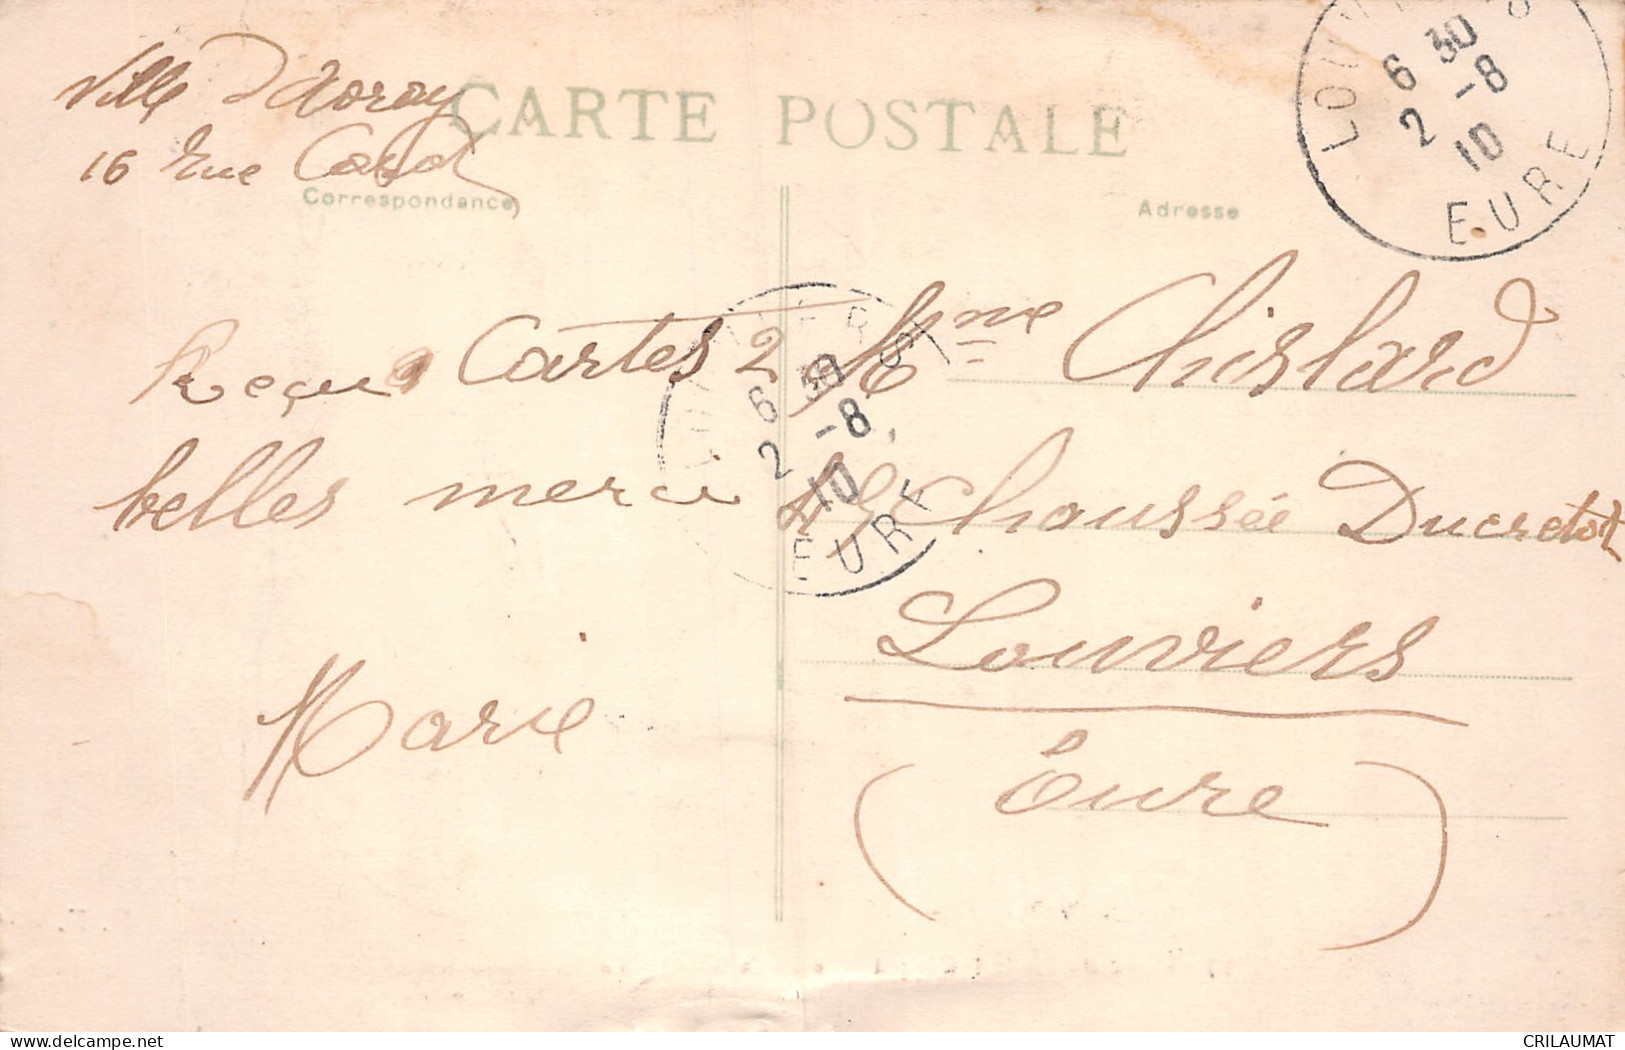 Ville d'Avray
16 rue Corot
CARTE POSTALE
Correspondance
Adresse
LOUVIERS
6 30
2 -8
10
EURE
Reçu Cartes 2
belles merci
Marie
LOUVIERS
6 30
2 -8
10
EURE
Mme Chislard
Chaussée Ducretot
Louviers
(Eure)
delcampe.net
CRILAUMAT